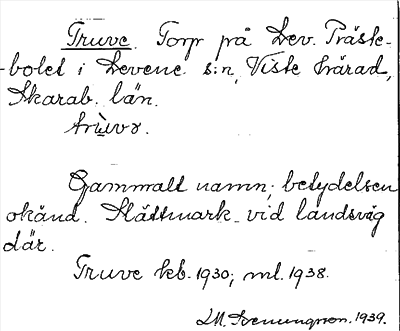 Truve. Torp på Lev. Präste-
bolet i Levene s:n, Viste härad,
Skarab. län.
trùvə.
Gammalt namn; betydelsen
okänd. Slättmark vid landsväg
där.
Truve kb. 1930; ml. 1938.
1939.